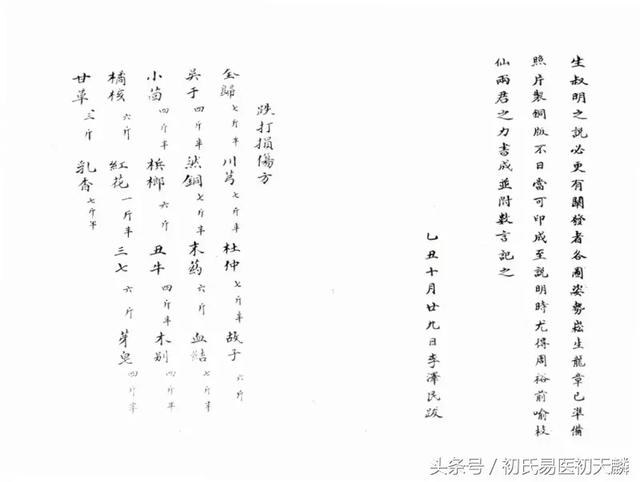 生叔明之說必更有闡發者各圖姿勢崧生龍章已準備
照片製銅版不日當可印成至說明時尤得周裕前喻敍
仙兩君之力書成並附數言記之
乙丑十月廿九日李澤民跋
跌打損傷方
全歸 七斤半 川芎 七斤半 杜仲 七斤半 故子 六斤
吳于 四斤半 然銅 七斤半 末葯 六斤 血結 七斤半
小茴 四斤半 梹榔 六斤 丑牛 四斤半 木别 四斤半
橘核 六斤 紅花 一斤半 三七 六斤 芽皂 四斤半
甘草 三斤 乳香 七斤半
头条号/初氏易医初天麟